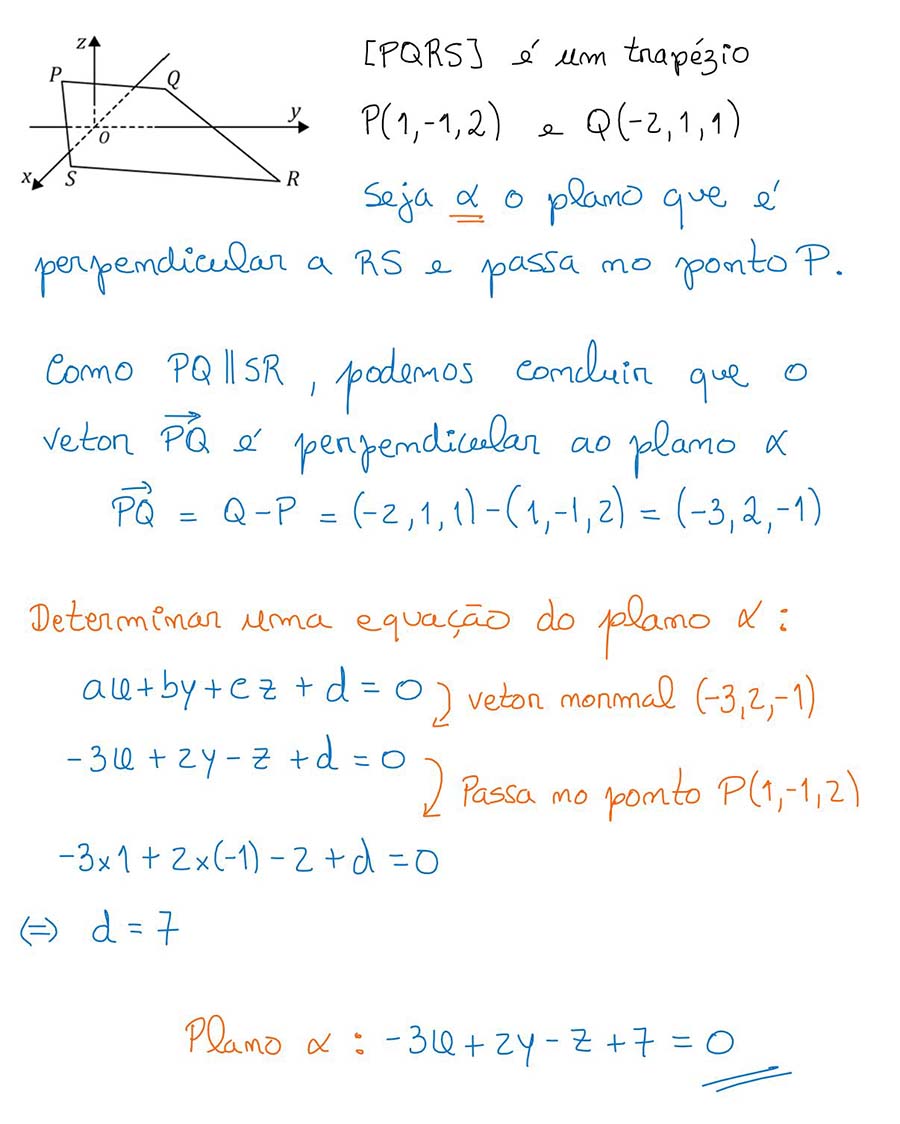 z
P
Q
y
O
x
S
R
[PQRS] é um trapézio
P(1,-1,2) e Q(-2,1,1)
Seja α o plano que é
perpendicular a RS e passa no ponto P.
Como PQ ∥ SR , podemos concluir que o
vetor \overrightarrow{PQ} é perpendicular ao plano α
\overrightarrow{PQ} = Q-P = (-2,1,1)-(1,-1,2) = (-3,2,-1)
Determinar uma equação do plano α :
ax+by+cz+d=0 vetor normal (-3,2,-1)
-3x+2y-z+d=0 Passa no ponto P(1,-1,2)
-3×1+2×(-1)-2+d=0
(=) d=7
Plano α : -3x+2y-z+7=0